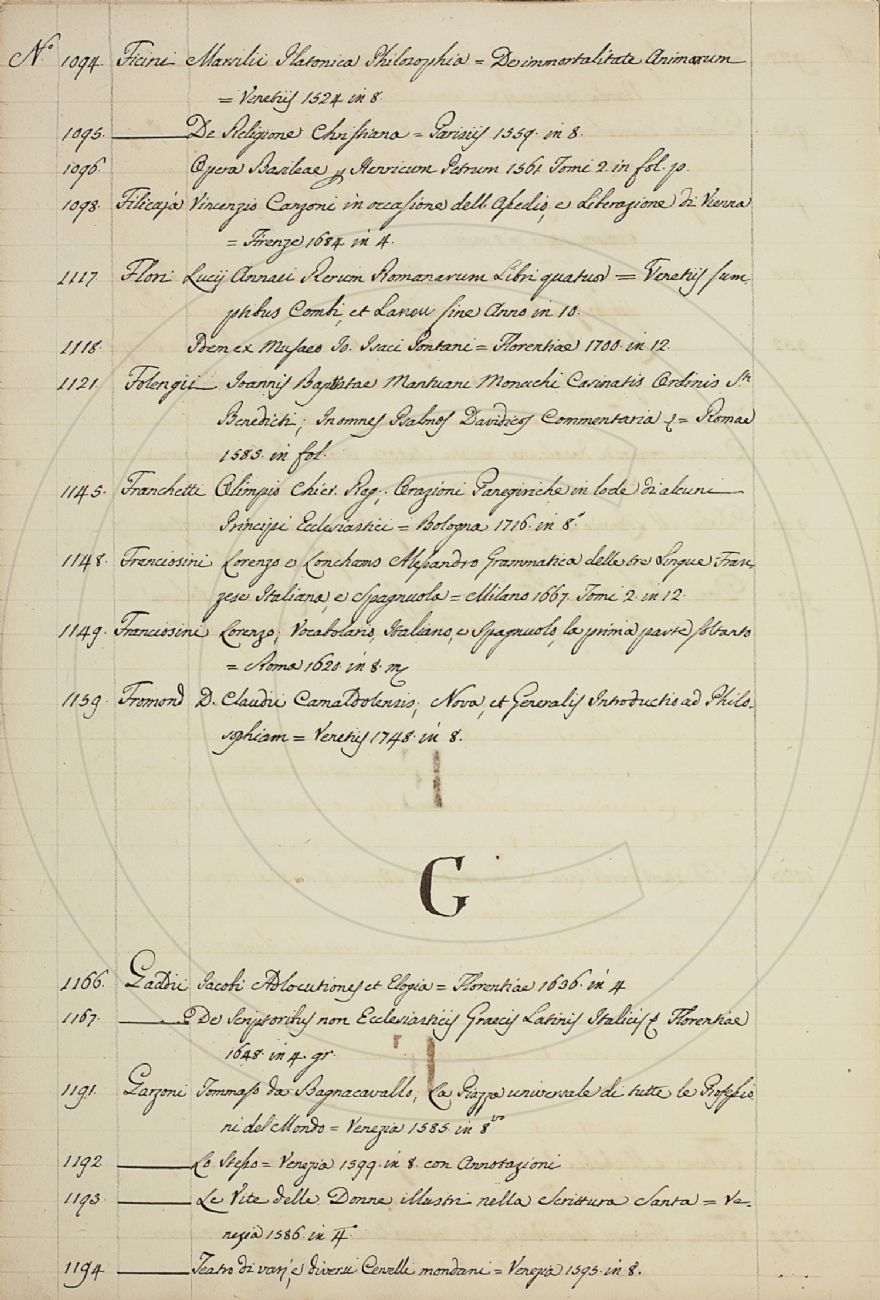 N.º 1094. Ficini Marsilii Platonica Philosophia = De immortalitate Animarum
= Venetijs 1524 in 8.
1095. De Religione Christiana = Parisiis 1559. in 8.
1096. Opera Basileae Henricum Petrum 1561. Tomi 2. in fol. p.
1098. Filicaja Vincenzio Canzoni in occasione dell' Assedio, e Liberazione di Vienna
= Firenze 1684. in 4.
1117 Flori Lucij Annaei Rerum Romanarum Libri quatuor = Venetijs sum-
ptibus Combi, et Lanou sine Anno in 10.
1118. Idem ex Musaeo Io. Isaci Pontani = Florentiae 1700. in 12.
1121 Folengii Joannis Baptistae Mantuani Monachi Casinatis Ordinis S.ti
Benedicti; In omnes Psalmos Davidicos Commentaria = Romae
1585. in fol.
1145. Franchetti Olimpio Chier. Reg.; Orazioni Panegiriche in lode di alcuni
Principi Ecclesiastici = Bologna 1716. in 8.º
1148. Franciosini Lorenzo e Lonchamo Alessandro Grammatica delle tre Lingue Fran-
zese Italiana, e Spagnuola = Milano 1667. Tomi 2. in 12.
1149. Franciosini Lorenzo; Vocabolario, Italiano, e Spagnuolo, la prima parte soltanto
= Roma 1620. in 8. m
1159. Fromond D. Claudii Camaldolensis; Nova, et Generalis Introductio ad Philo-
sophiam = Venetijs 1748. in 8.
G
1166. Gaddii Jacobi Adlocutiones et Elogia = Florentiae 1636. in 4
1167. De Scriptoribus non Ecclesiasticis Graecis Latinis Italicis Florentiae
1648. in 4. gr.
1191. Garzoni Tommaso da Bagnacavallo; La Piazza universale di tutte le Professio
ni del Mondo = Venezia 1585. in 8.vo
1192 Lo Stesso = Venezia 1599. in 8. con Annotazioni
1193. Le Vite delle Donne illustri nella Scrittura Santa = Ve-
nezia 1586. in 4.º
1194 Teatro di varj, e diversi Cervelli mondani = Venezia 1595. in 8.